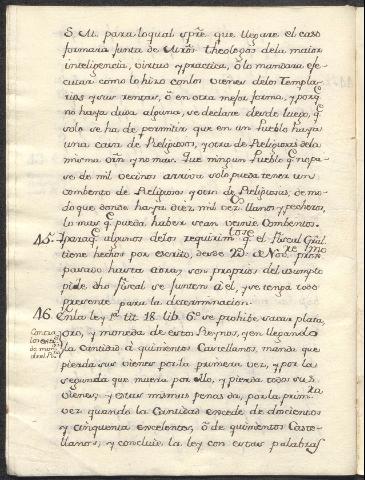 S. M. para loqual spre. que llegare el caso
formara Junta de Mros. theologos dela maior
inteligencia, virtud y practica, ô lo mandara eje-
cutar como lo hizo conlos vienes delos Templa-
rios y sus rentas, ô en otra mejor forma, y porq.
no haya duda alguna, se declare desde luego, q.
solo se ha de permitir que en un Pueblo haya
una casa de Religiosos, y otra de Religiosas dela
misma orn. y no mas. Que ningun Pueblo q. nopa-
se de mil vecinos arriva solo pueda tener un
combento de Religiosos y otro de Religiosas, de mo-
do que donde haya diez mil vecos. llanos y pecheros,
lo mas q. pueda haber sean veinte Combentos.
45. Yparaq. algunos delos requirimtos. q. el Fiscal Gral.
tiene hechos por escrito, desde 20 de Nove. proximo
pasado hasta aora, son proprios del asumpto
pide dho fiscal se junten â el, y se tenga todo
presente para la determinacion.
46. Enla ley 1a. tit 18. lib. 6o. se prohibe sacar plata,
oro, y moneda de estos Reynos, y en llegando
la cantidad â quinientos Castellanos, manda que
pierda sus vienes por la primera vez, y por la
segunda que muera por ello, y pierda todos sus
vienes; y estas mismas penas da, por la prim.ra
vez quando la Cantidad excede de docientos
y cinquenta excelentes, ô de quinientos Caste-
llanos, y concluie la ley con estas palabras
Contra
los extros.